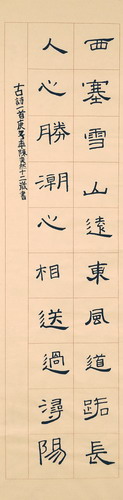 西塞雪山遠東風道路長
人心勝潮心相送過潯陽
古詩一首庚
十二歲書